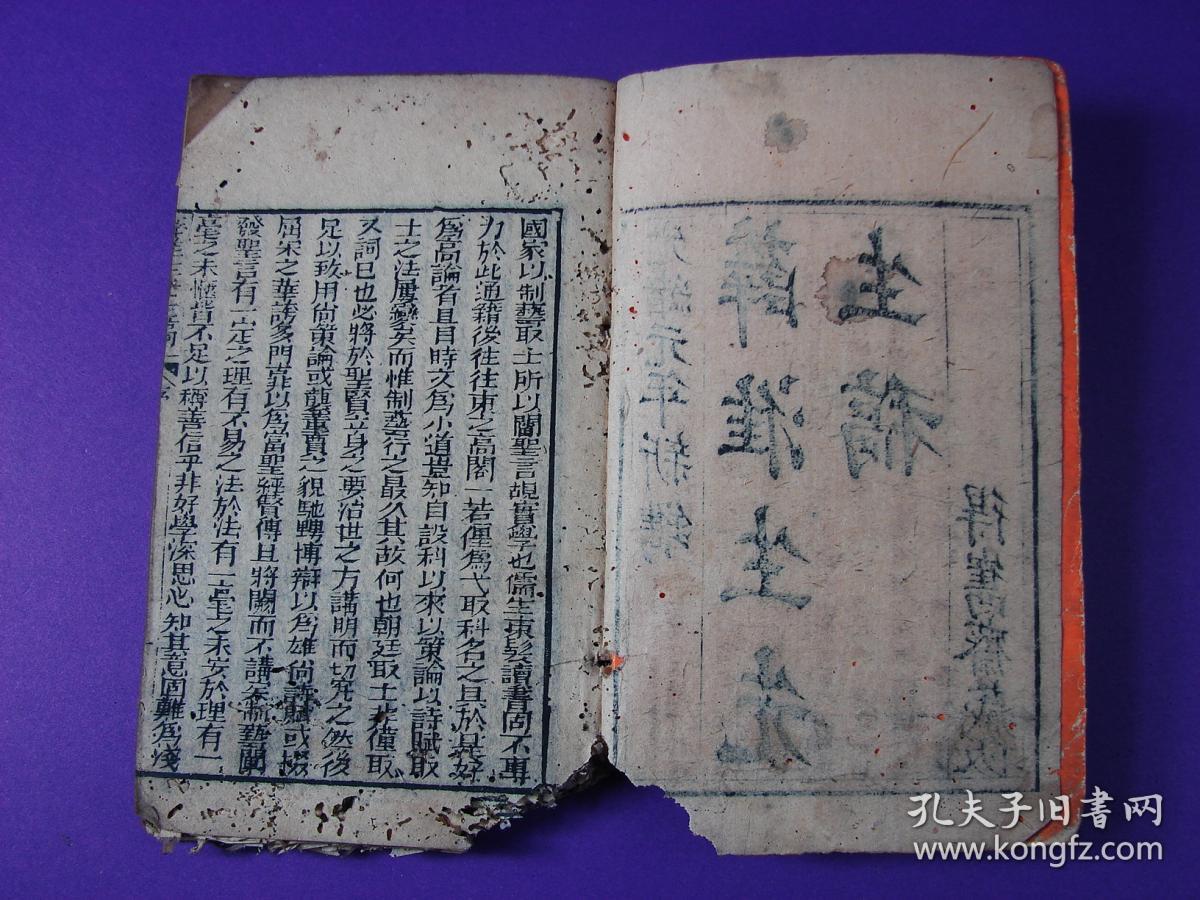 光緒元年新鐫
薛淮生先
生稿
國家以制藝取士所以闡聖言覘實學也儒生束髮讀書罔不專
力於此通籍後往往束之高閣一若僅爲弋取科名之具於是好
爲高論者且目時文爲小道豈知自設科以來以策論以詩賦取
士之法屢變矣而惟制藝行之最久其故何也朝廷取士非僅取
文詞已也必將於聖賢立身之要治世之方講明而切究之然後
足以致用尙策論或襲董賈之貌馳騁博辯以爲雄尙詩賦或掇
屈宋之華誇多鬥靡以爲富聖經賢傳且將闕而不講矣制藝闡
發聖言有一定之理有不易之法於法有一毫之未安於理有一
毫之未愜皆不足以稱善信乎非好學深思心知其意固難爲淺
孔夫子旧书网
www.kongfz.com